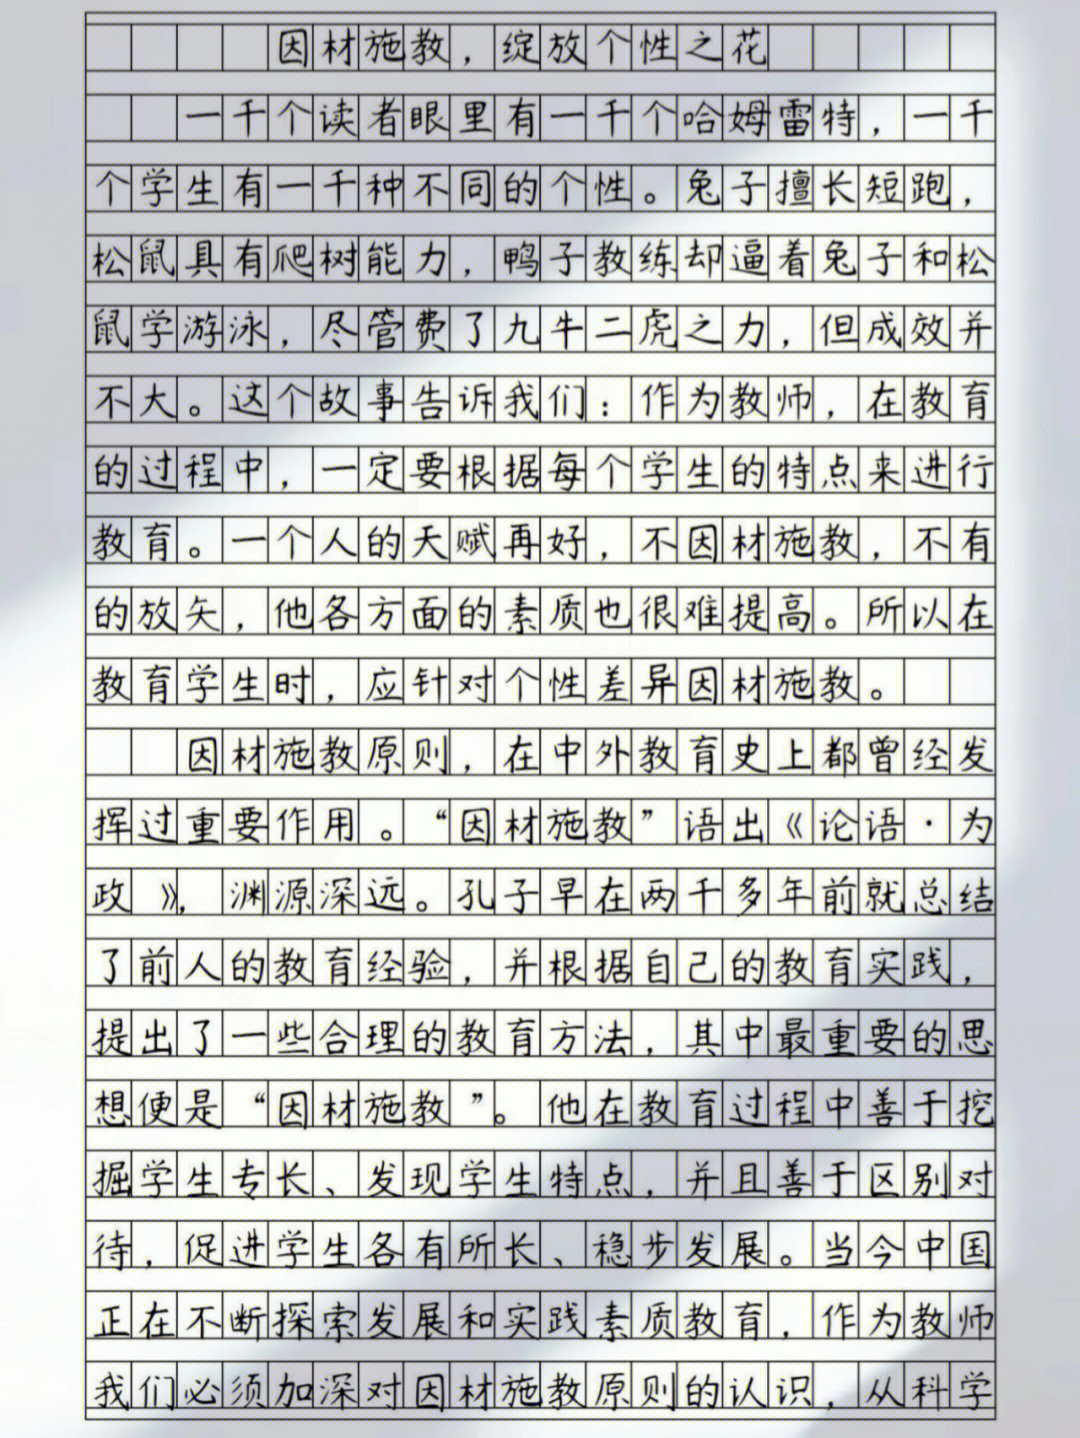 因材施教，绽放个性之花
一千个读者眼里有一千个哈姆雷特，一千
个学生有一千种不同的个性。兔子擅长短跑，
松鼠具有爬树能力，鸭子教练却逼着兔子和松
鼠学游泳，尽管费了九牛二虎之力，但成效并
不大。这个故事告诉我们：作为教师，在教育
的过程中，一定要根据每个学生的特点来进行
教育。一个人的天赋再好，不因材施教，不有
的放矢，他各方面的素质也很难提高。所以在
教育学生时，应针对个性差异因材施教。
因材施教原则，在中外教育史上都曾经发
挥过重要作用。“因材施教”语出《论语·为
政》，渊源深远。孔子早在两千多年前就总结
了前人的教育经验，并根据自己的教育实践，
提出了一些合理的教育方法，其中最重要的思
想便是“因材施教”。他在教育过程中善于挖
掘学生专长、发现学生特点，并且善于区别对
待，促进学生各有所长、稳步发展。当今中国
正在不断探索发展和实践素质教育，作为教师
我们必须加深对因材施教原则的认识，从科学